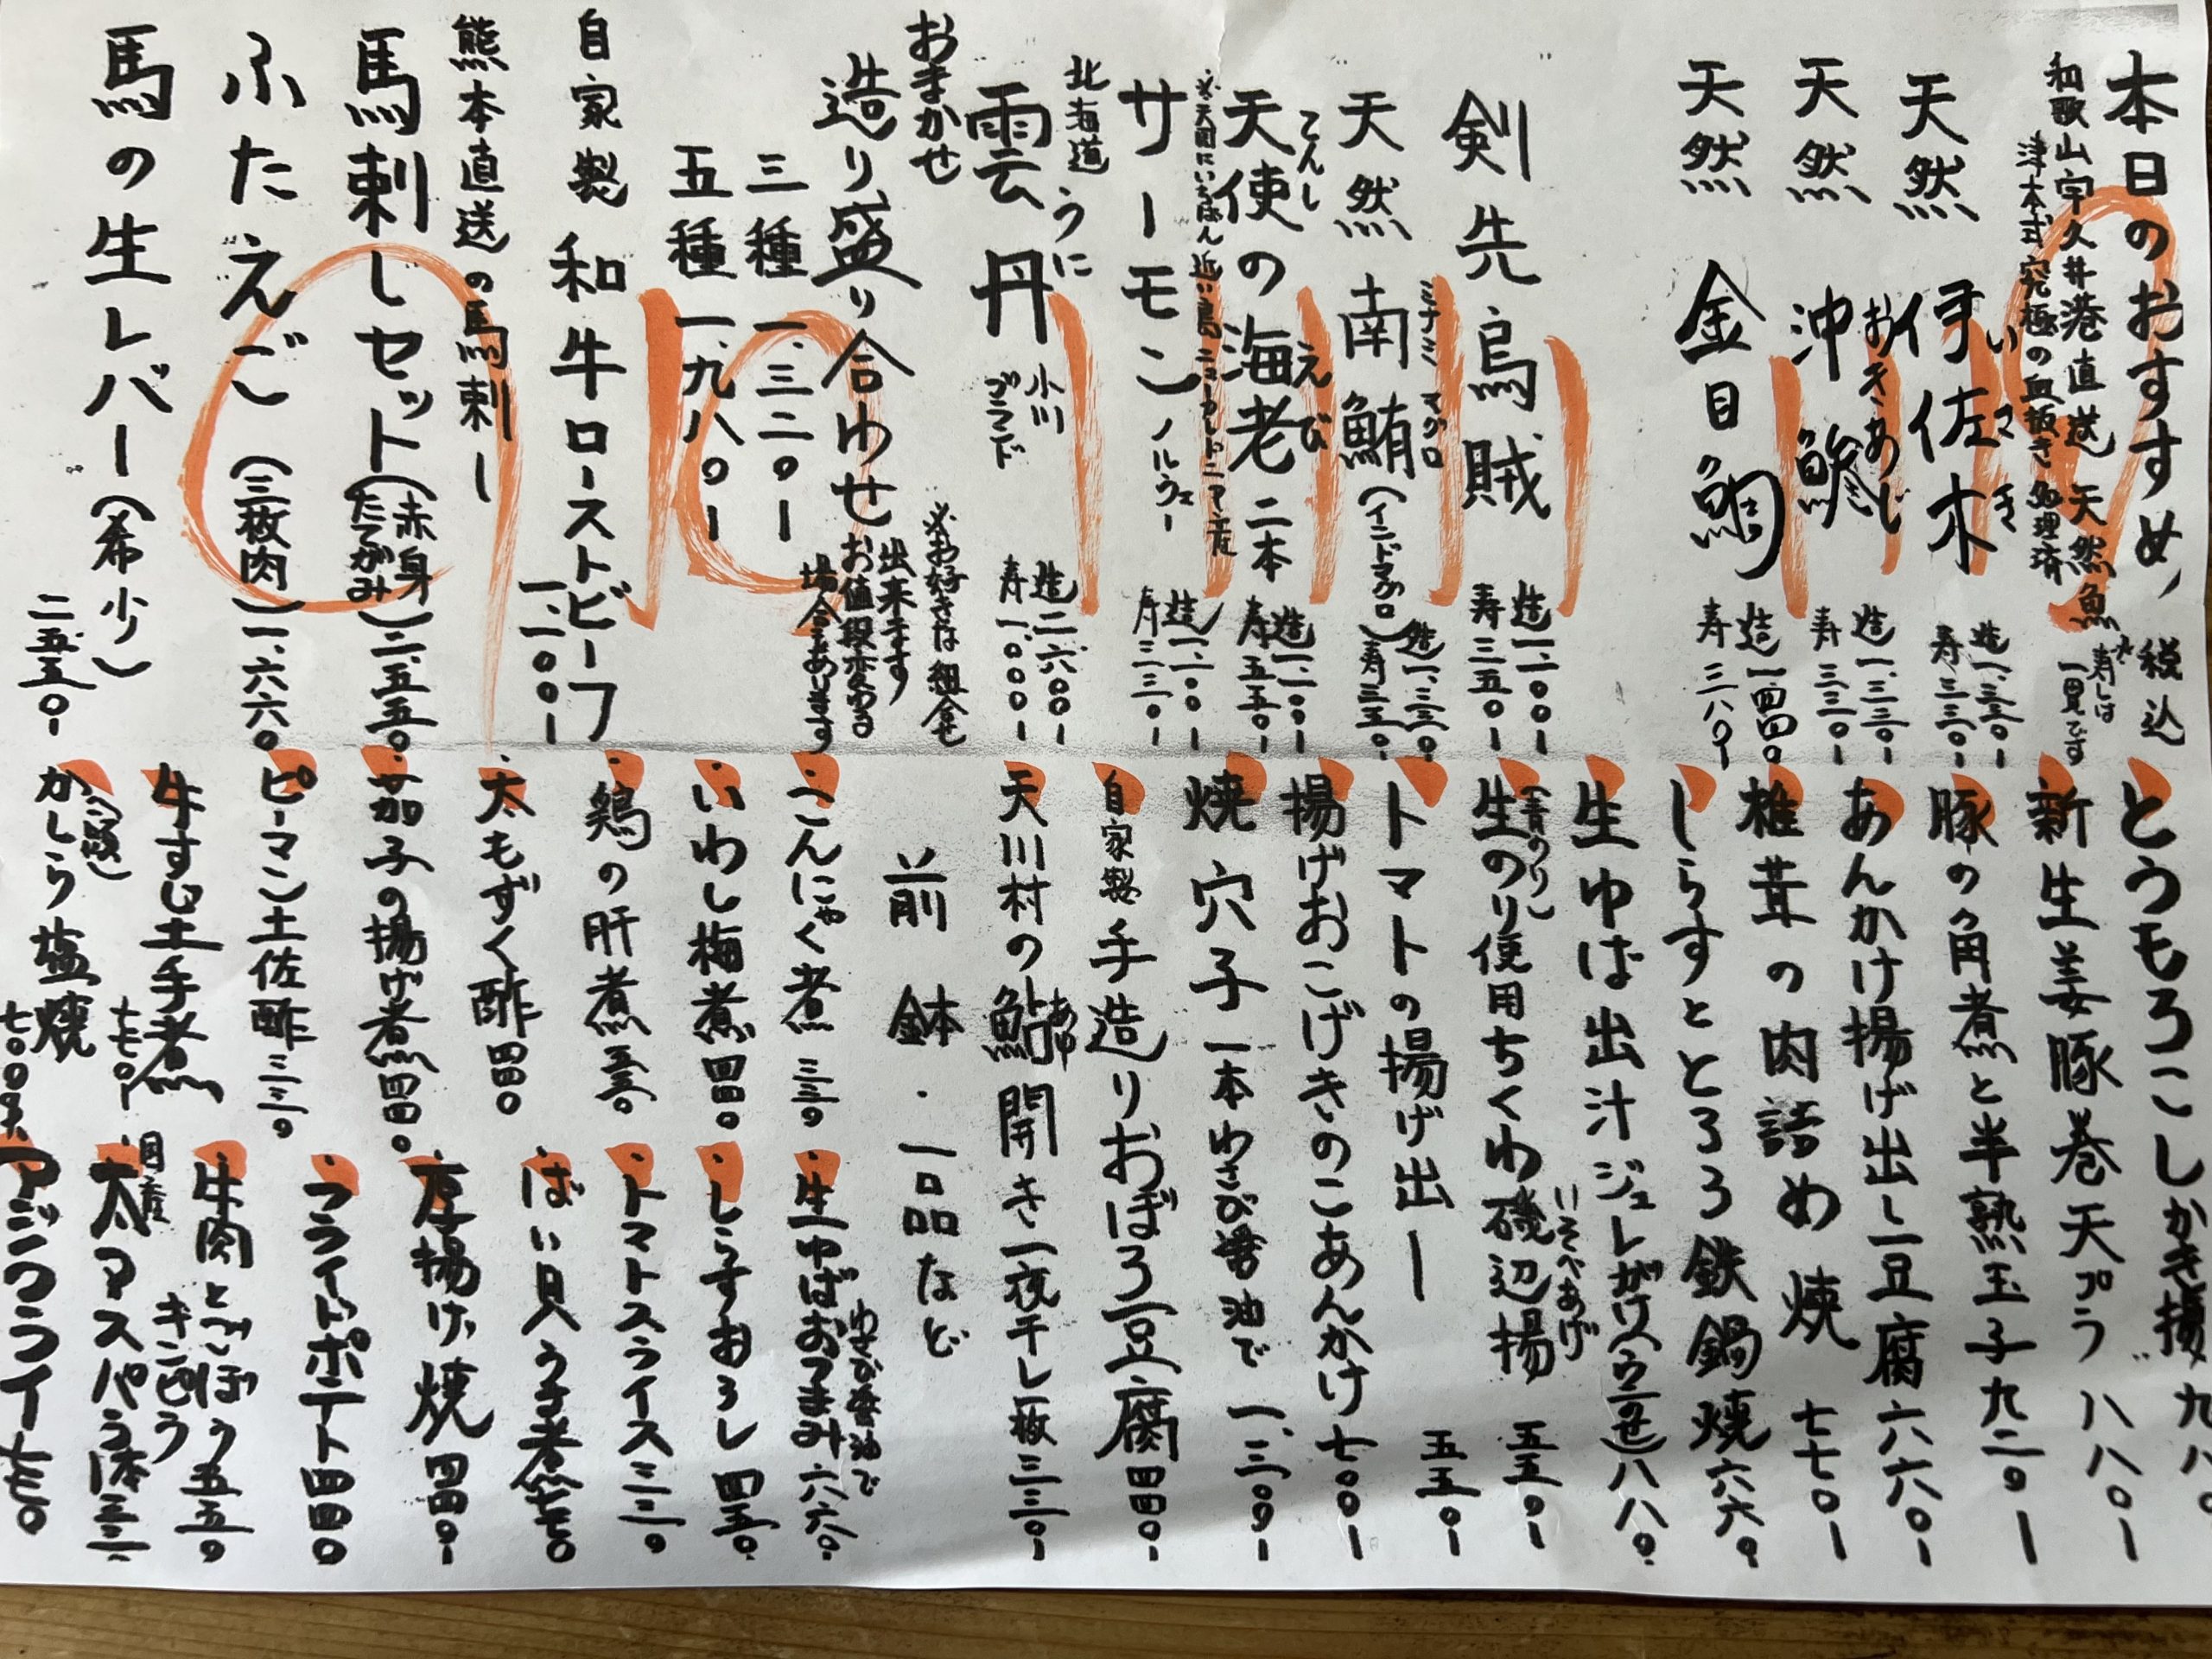 本日のおすすめ 税込
和歌山宇久井港直送 天然魚
津本式究極の血抜き処理済
※寿しは一貫です
天然 伊佐木 造一、三三〇ー 寿三三〇ー
いさき
天然 沖鯵 造一、三三〇ー 寿三三〇ー
おきあじ
天然 金目鯛 造一四四〇 寿三八〇ー
剣先烏賊 造一、一〇〇ー 寿三五〇ー
天然 南鮪(インドマグロ) 造一、三三〇 寿三五〇ー
ミナミ マグロ
天使の海老 二本 造一、一〇〇ー 寿五五〇ー
てんし えび
※天国にいちばん近い島ニューカレドニア産
サーモン ノルウェー 造一、一〇〇ー 寿三三〇ー
北海道 うに
雲丹 小川ブランド 造二、六〇〇ー 寿一、〇〇〇ー
おまかせ
造り盛り合わせ
三種 一、三二〇ー
五種 一、九八〇ー
※お好きな組合せも出来ますお値段変わる場合もあります
自家製 和牛ローストビーフ 一、一〇〇ー
熊本直送の馬刺し
馬刺しセット(赤身 たてがみ)二、五五〇
ふたえご(三枚肉)一、六六〇
馬の生レバー(希少)二、五五〇ー
とうもろこしかき揚 九八〇
新生姜豚巻天プラ 八八〇ー
豚の角煮と半熟玉子 九二〇ー
あんかけ揚げ出し豆腐 六六〇ー
椎茸の肉詰め焼 七七〇ー
しらすととろろ鉄鍋焼 六六〇
生ゆば出汁ジュレがけ(うにのせ)八八〇
(青のり)
生のり使用ちくわ磯辺揚 五五〇ー
いそべあげ
トマトの揚げ出し 五五〇ー
揚げおこげきのこあんかけ 七〇〇ー
焼穴子一本わさび醤油で 一、三〇〇ー
自家製 手造りおぼろ豆腐 四四〇ー
天川村の鮎開き一夜干し一枚 三三〇ー
あゆ
前鉢・一品など
・こんにゃく煮 三三〇
・いわし梅煮 四四〇
・鶏の肝煮 五五〇
・太もずく酢 四四〇
・茄子の揚げ煮 四四〇
・ピーマン土佐酢 三三〇
・牛すじ土手煮 七七〇ー
かしら塩焼
・生ゆばおつまみ 六六〇
わさび醤油で
・しらすおろし 四五〇
・トマトスライス 三三〇
・ばい貝うま煮 七七〇
・厚揚げ焼 四四〇ー
・フライドポテト 四四〇
・牛肉とごぼう 五五〇
きんぴら
・国産 太アスパラ一本
アジフライ